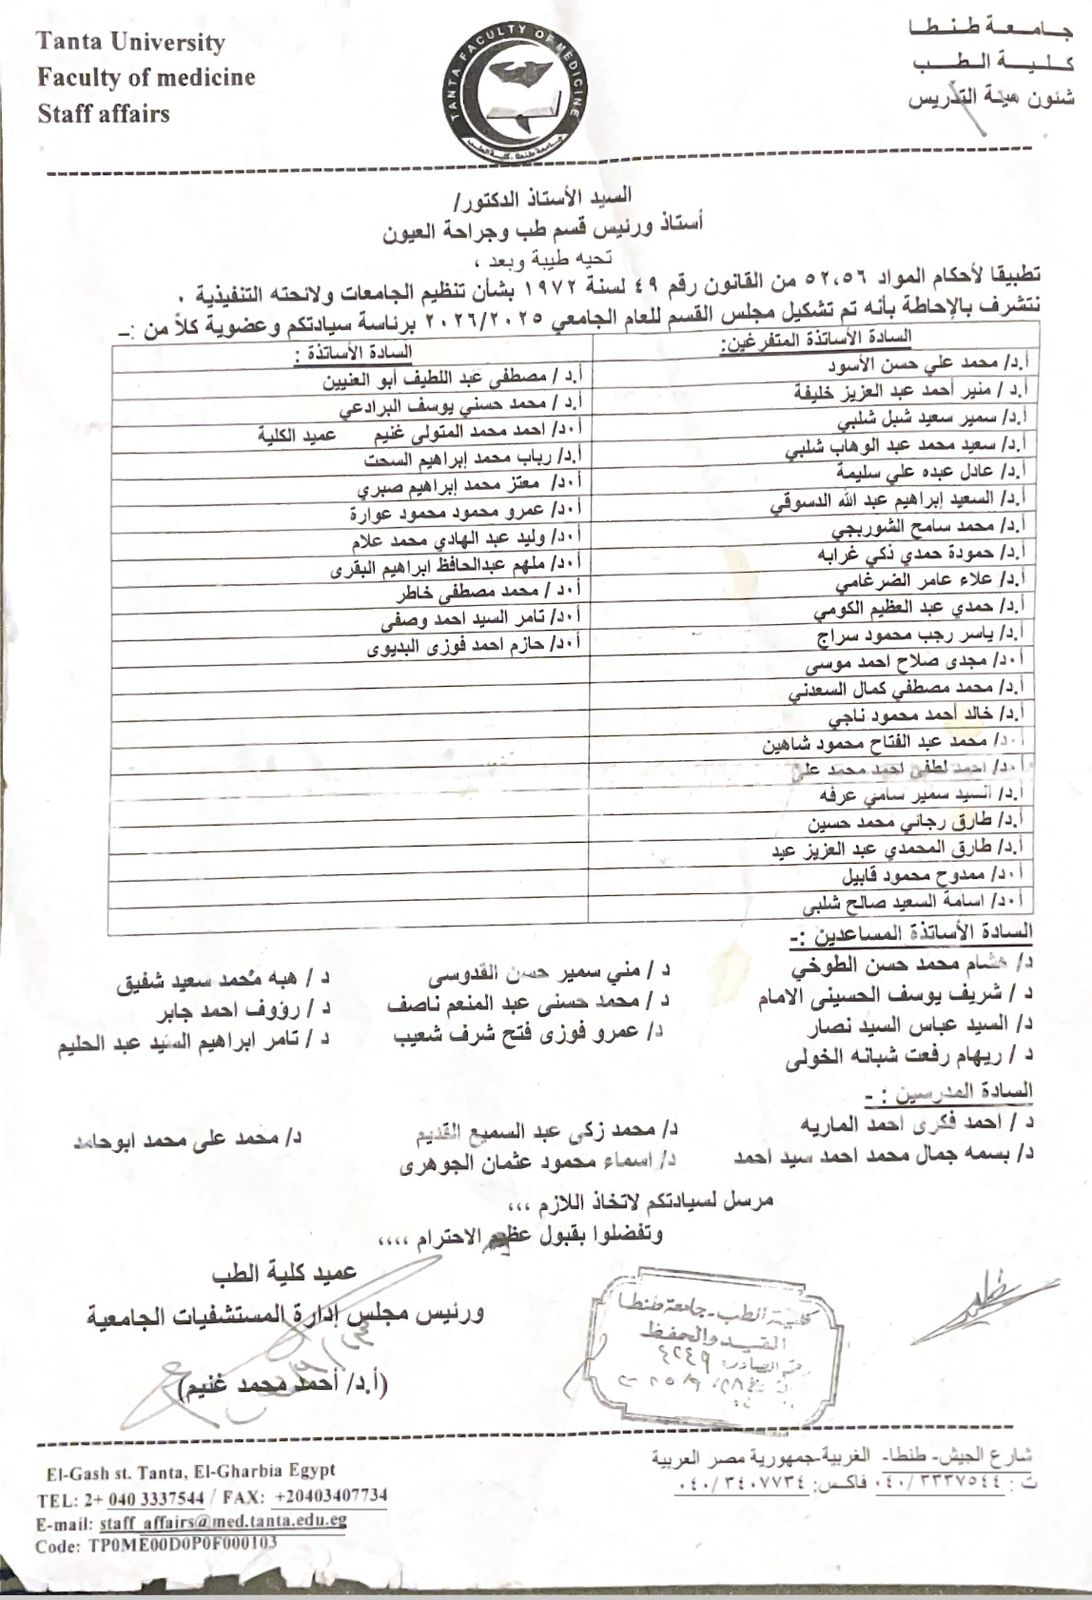 Tanta University
Faculty of medicine
Staff affairs
TANTA FACULTY OF MEDICINE
جامعة طنطا - كلية الطب
جامعة طنطا
كلية الطب
شئون هيئة التدريس
السيد الأستاذ الدكتور/
أستاذ ورئيس قسم طب وجراحة العيون
تحيه طيبة وبعد ،
تطبيقا لأحكام المواد ٥٢،٥٦ من القانون رقم ٤٩ لسنة ١٩٧٢ بشأن تنظيم الجامعات ولائحته التنفيذية ٠
نتشرف بالإحاطة بأنه تم تشكيل مجلس القسم للعام الجامعي ٢٠٢٦/٢٠٢٥ برئاسة سيادتكم وعضوية كلاً من :-
السادة الأساتذة المتفرغين:
أ.د/ محمد علي حسن الأسود
أ.د/ منير أحمد عبد العزيز خليفة
أ.د/ سمير سعيد شبل شلبي
أ.د/ سعيد محمد عبد الوهاب شلبي
أ.د/ عادل عبده علي سليمة
أ.د/ السعيد إبراهيم عبد الله الدسوقي
أ.د/ محمد سامح الشوربجي
أ.د/ حمودة حمدي ذكي غرابه
أ.د/ علاء عامر الضرغامي
أ.د/ حمدي عبد العظيم الكومي
أ.د/ ياسر رجب محمود سراج
أ٠د/ مجدى صلاح احمد موسى
أ.د/ محمد مصطفي كمال السعدني
أ.د/ خالد أحمد محمود ناجي
أ٠د/ محمد عبد الفتاح محمود شاهين
أ٠د/ احمد لطفى احمد محمد على
أ.د/ السيد سمير سامي عرفه
أ.د/ طارق رجائي محمد حسين
أ.د/ طارق المحمدي عبد العزيز عيد
أ٠د/ ممدوح محمود قابيل
أ٠د/ اسامة السعيد صالح شلبى
السادة الأساتذة :
أ.د / مصطفى عبد اللطيف أبو العنيين
أ.د/ محمد حسني يوسف البرادعي
أ٠د/ احمد محمد المتولى غنيم عميد الكلية
أ.د/ رباب محمد إبراهيم السحت
أ٠د/ معتز محمد إبراهيم صبري
أ٠د/ عمرو محمود محمود عوارة
أ٠د/ وليد عبد الهادي محمد علام
أ٠د/ ملهم عبدالحافظ ابراهيم البقرى
أ٠د / محمد مصطفي خاطر
أ٠د/ تامر السيد احمد وصفى
أ٠د/ حازم احمد فوزى البديوى
السادة الأساتذة المساعدين :-
د/ هشام محمد حسن الطوخي د / مني سمير حسن القدوسى د / هبه محمد سعيد شفيق
د / شريف يوسف الحسينى الامام د / محمد حسنى عبد المنعم ناصف د / رؤوف احمد جابر
د/ السيد عباس السيد نصار د/ عمرو فوزى فتح شرف شعيب د / تامر ابراهيم السيد عبد الحليم
د / ريهام رفعت شبانه الخولى
السادة المدرسين : -
د / احمد فكرى احمد الماريه د/ محمد زكى عبد السميع القديم د/ محمد على محمد ابوحامد
د/ بسمه جمال محمد احمد سيد احمد د/ اسماء محمود عثمان الجوهرى
مرسل لسيادتكم لاتخاذ اللازم ،،،
وتفضلوا بقبول عظيم الاحترام ،،،،
عميد كلية الطب
ورئيس مجلس إدارة المستشفيات الجامعية
(أ.د/ أحمد محمد غنيم)
كلية الطب - جامعة طنطا
القيد والحفظ
رقم الصادر: ٤٢٤٩
شارع الجيش- طنطا- الغربية-جمهورية مصر العربية
ت : ٠٤٠/٣٣٣٧٥٤٤ فاكس: ٠٤٠/٣٤٠٧٧٣٤
El-Gash st. Tanta, El-Gharbia Egypt
TEL: 2+ 040 3337544 / FAX: +20403407734
E-mail: staff_affairs@med.tanta.edu.eg
Code: TP0ME00D0P0F000103